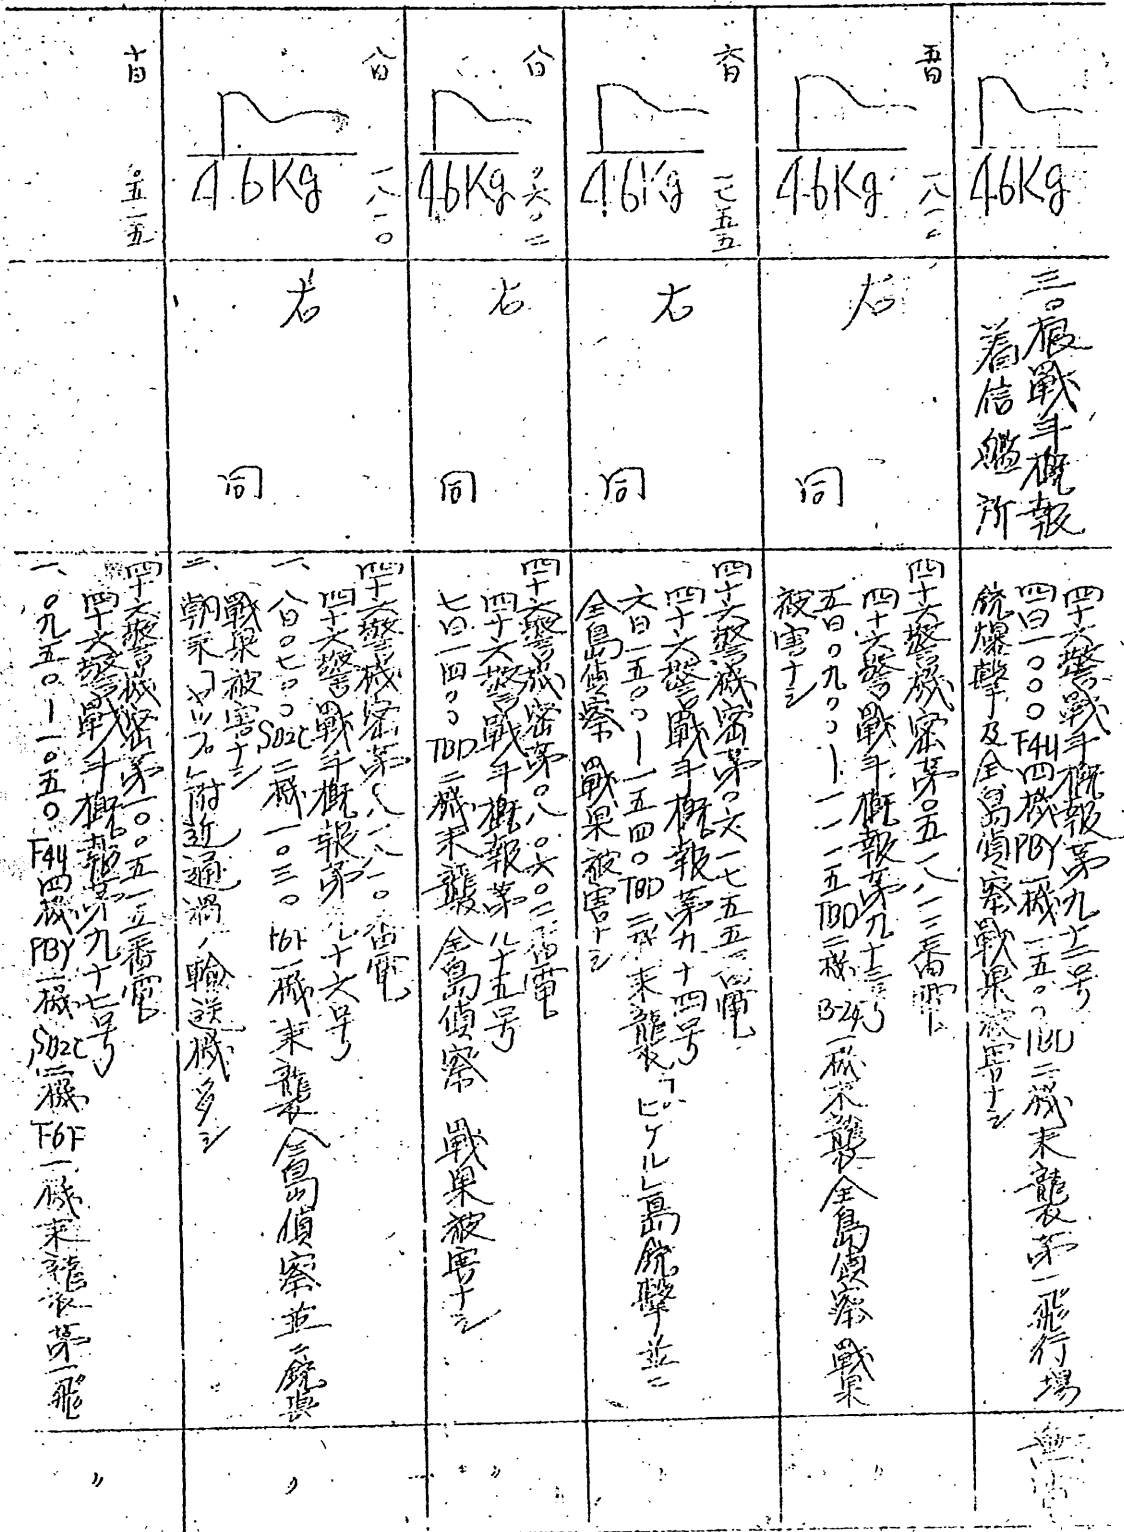 46Kg
三〇根戰斗概報
着信艦所
四十六警戰斗概報第九十二号
四日一〇〇〇F4U四機PBY一機一五〇〇TBD二機来襲第一飛行場
銃爆擊及全島偵察戰果被害ナシ
無法
五日
一八一二
46Kg
右
同
四十六警機密第〇五一八一二番電
四十六警戰斗概報第九十三号
五日〇九〇〇ー一一一五TBD二機B-24一機来襲全島偵察戰果
被害ナシ
六日
一七五五
4.6Kg
右
同
四十六警機密第〇六一七五五番電
四十六警戰斗概報第九十四号
六日一五〇〇ー一五四〇TBD二機来襲「ピケル」島銃擊並ニ
全島偵察 戰果被害ナシ
八日
〇六〇二
46Kg
右
同
四十六警機密第〇八〇六〇二番電
四十六警戰斗概報第九十五号
七日一四〇〇TBD二機来襲 全島偵察 戰果被害ナシ
〃
八日
一八一〇
4.6Kg
右
同
四十六警機密第〇八一八一〇番電
四十六警戰斗概報第九十六号
一、八日〇七〇〇SB2C二機一〇三〇F6F一機来襲全島偵察並ニ銃爆
戰果被害ナシ
二、朝来「ヤップ」附近通過ノ輸送機多シ
〃
十日
〇五一五
四十六警機密第一〇〇五一五番電
四十六警戰斗概報第九十七号
一、〇九五〇ー一〇五〇F4U四機PBY一機SB2C二機F6F一機来襲第一飛
〃